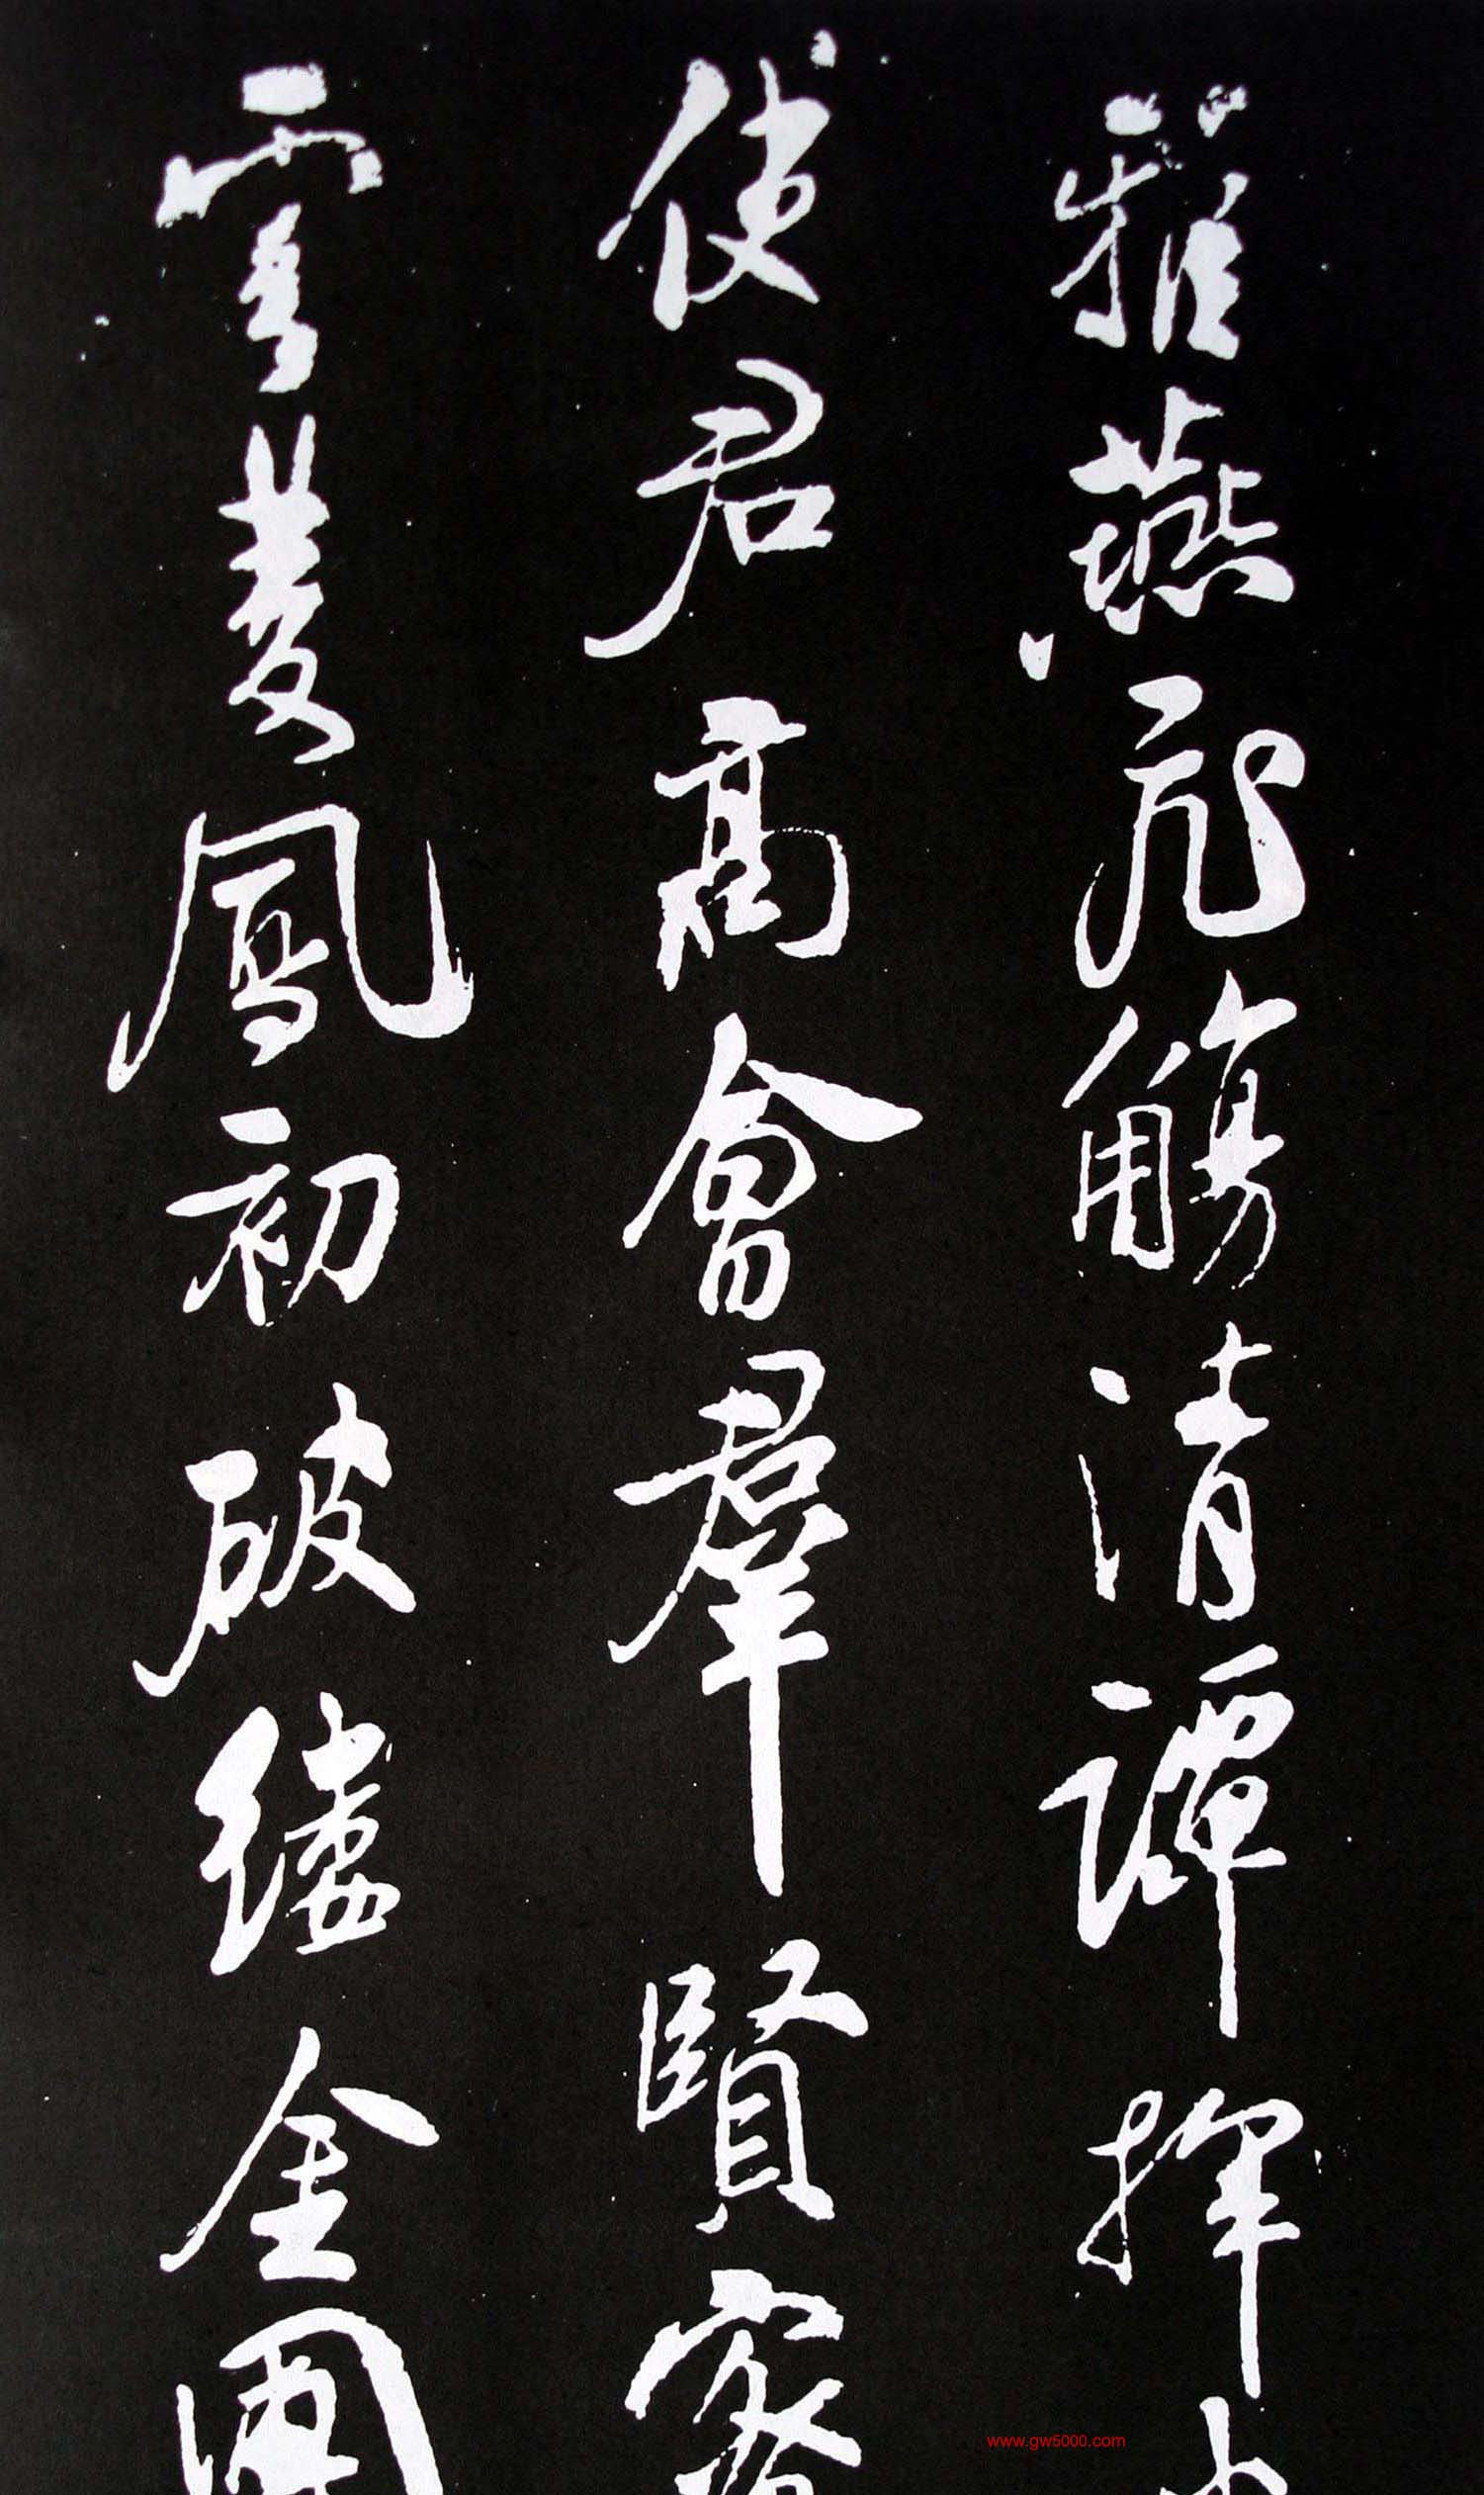 雅燕飛觴清譚揮
使君高會羣賢密
雲雙鳳初破縷金團
www.gw5000.com